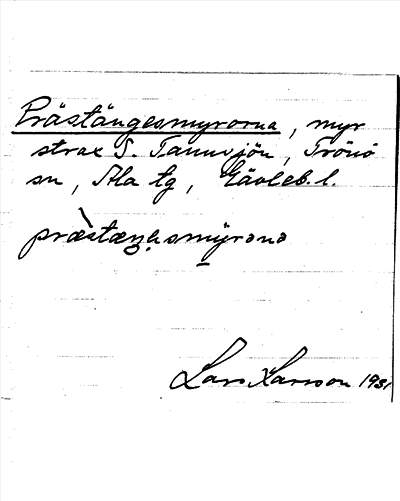 Prästängesmyrorna, myr
strax S. Tannsjön, Trönö
sn, Ala tg, Gävleb. l.
præ̀stæŋəsmyrəna
Lars Larsson 1931